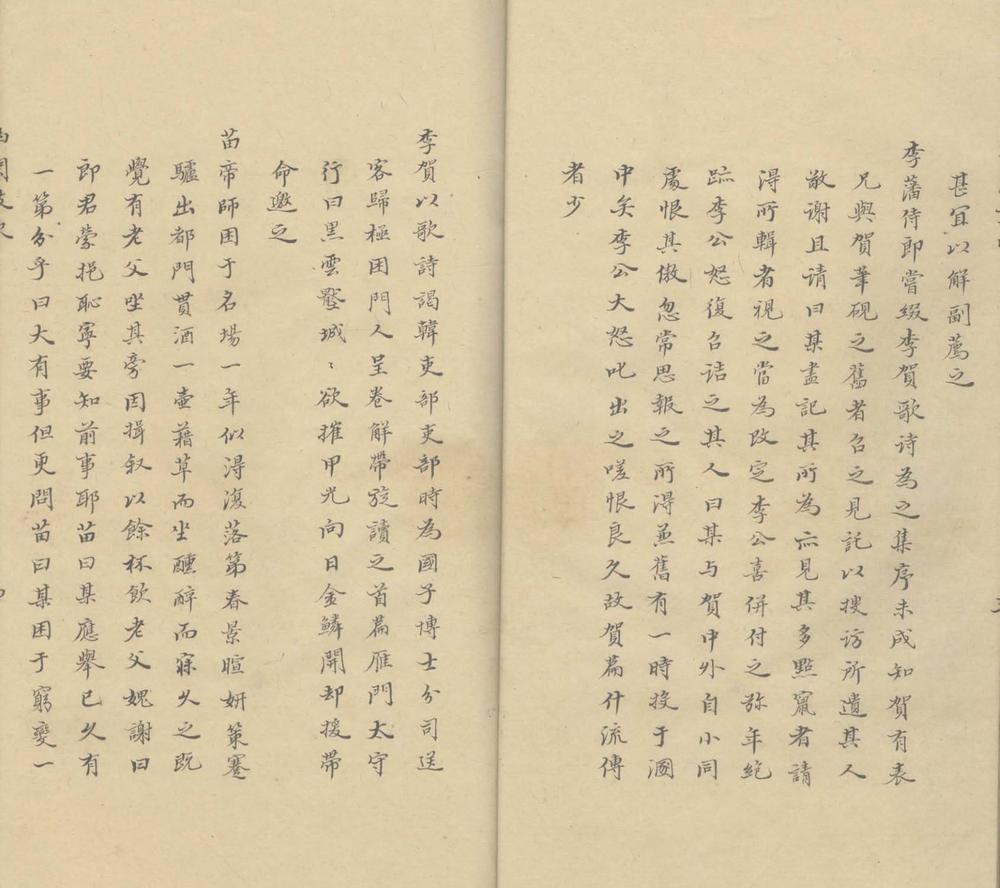 甚冝以解副薦之
李藩侍郎嘗綴李賀歌詩為之集序未成知賀有表
兄與賀筆硯之舊者召之見託以搜訪所遺其人
敬謝且请曰某盡記其所為亦見其多點竄者請
淂所輯者視之當為改定李公喜併付之弥年絶
跡李公怒復召詰之其人曰某与賀中外自小同
處恨其傲忽常思報之所得兼舊有一時投于溷
中矣李公大怒叱出之嗟恨良久故賀篇什流傳
者少
李賀以歌詩謁韓吏部吏部時為國子博士分司送
客歸極困門人呈卷解帶旋讀之首篇雁門太守
行曰黒雲壓城﹅欲摧甲光向日金鱗開却援帶
命邀之
苗帝師困于名場一年似淂復落第春景暄妍策蹇
驢出都門貰酒一壷藉草而坐醺醉而寐久之既
覺有老父坐其旁因揖叙以餘杯飲老父媿謝曰
郎君縈挹耻寧要知前事耶苗曰某應舉已久有
一第分乎曰大有事但更問苗曰某困于窮變一